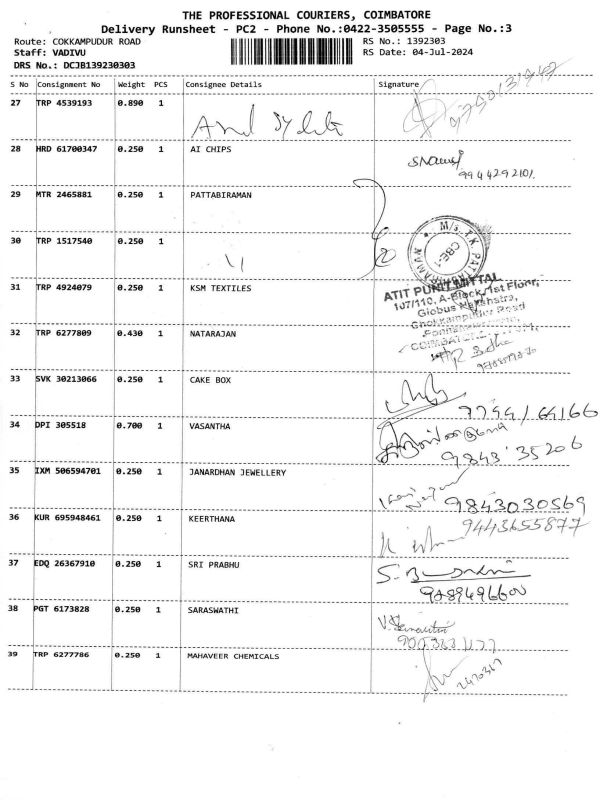 THE PROFESSIONAL COURIERS, COIMBATORE
Delivery Runsheet - PC2 - Phone No.:0422-3505555 - Page No.:3
Route: COKKAMPUDUR ROAD RS No.: 1392303
Staff: VADIVU RS Date: 04-Jul-2024
DRS No.: DCJB139230303
S No Consignment No Weight PCS Consignee Details Signature
27 TRP 4539193 0.890 1
28 HRD 61700347 0.250 1 AI CHIPS
9944292101
29 MTR 2465881 0.250 1 PATTABIRAMAN
30 TRP 1517540 0.250 1
31 TRP 4924079 0.250 1 KSM TEXTILES
ATIT PUNIT MITTAL
107/110, A-Block, 1st Floor,
32 TRP 6277809 0.430 1 NATARAJAN
33 SVK 30213066 0.250 1 CAKE BOX
34 DPI 305518 0.700 1 VASANTHA
9843 35206
35 IXM 506594701 0.250 1 JANARDHAN JEWELLERY
9843030569
36 KUR 695948461 0.250 1 KEERTHANA
9443655877
37 EDQ 26367910 0.250 1 SRI PRABHU
38 PGT 6173828 0.250 1 SARASWATHI
39 TRP 6277786 0.250 1 MAHAVEER CHEMICALS